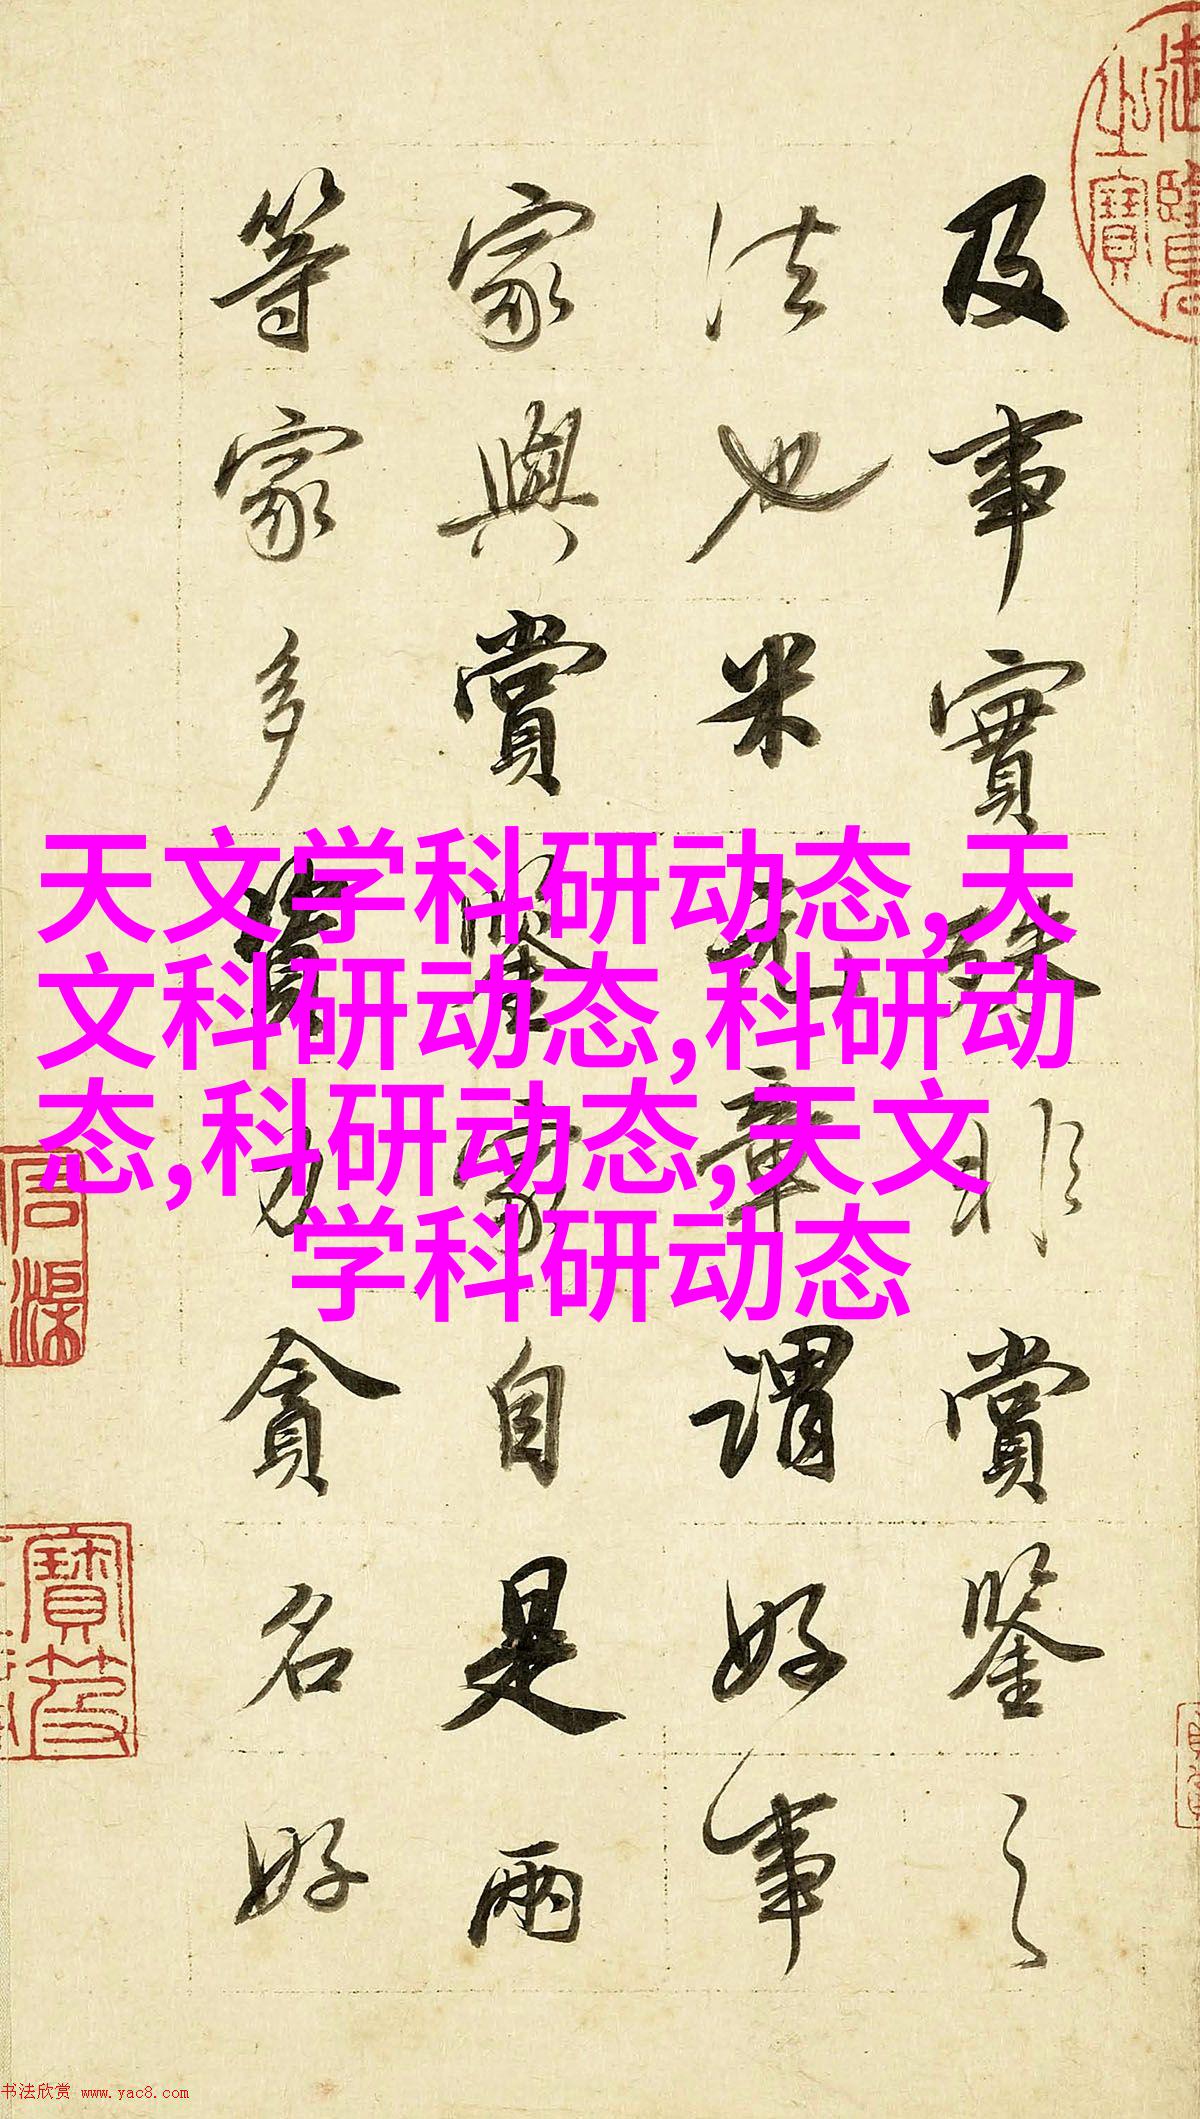 及事實殊非賞鑒之
法也米元章謂好事
家與賞鑒家自是兩
等家多資力貪名好
天文学科研动态,天
文科研动态,科研动
态,科研动态,天文
学科研动态
书法欣赏 www.yac8.com